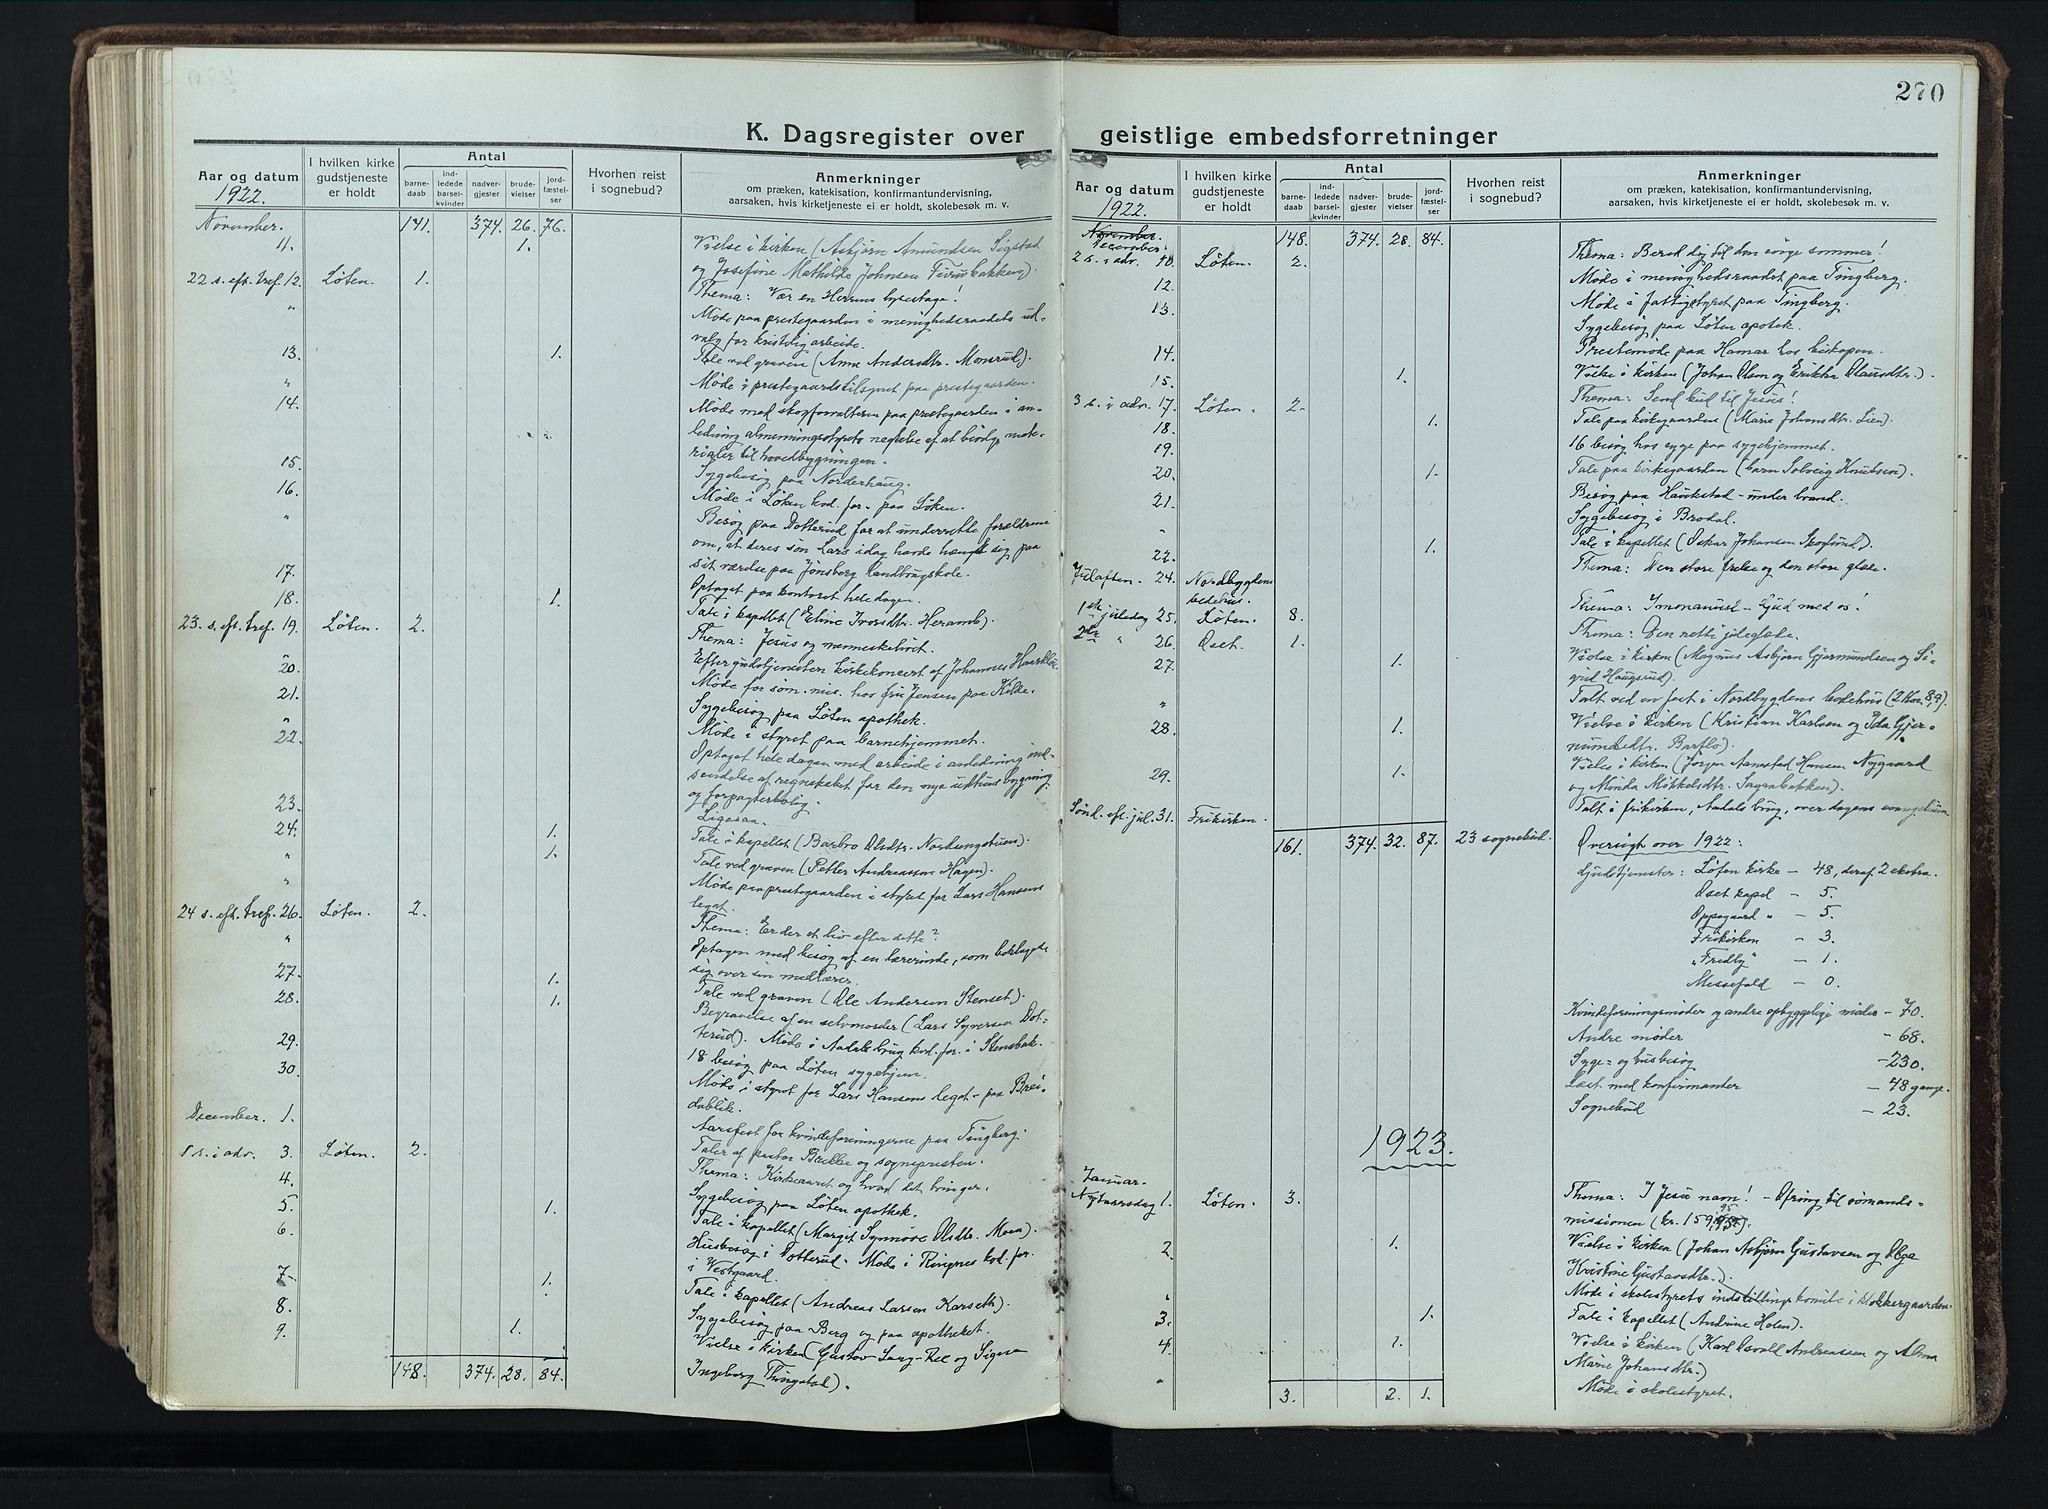 270
K. Dagsregister over geistlige embedsforretninger
Aar og datum
1922.
I hvilken kirke gudstjeneste er holdt
Antal
barne-daab
ind-ledede barsel-kvinder
nadver-gjester
brude-vielser
jord-fæstel-ser
Hvorhen reist i sognebud?
Anmerkninger
om præken, katekisation, konfirmantundervisning,
aarsaken, hvis kirketjeneste ei er holdt, skolebesøk m. v.
November. 141. 374. 26. 76.
11. 1. Vielse i kirken (Asbjørn Amundsen Sigstad
og Josefine Mathilde Johnsen Furubakken).
22 s. eft. tref. 12. Løten. 1. Thema: Vær en Herrens lysestage!
" Møde paa prestegaarden i menighedsraadets ud-
valg for kristelig arbeide.
13. 1. Tale ved graven (Anne Andersdtr. Monsrud).
" Møde i prestegaardstilsynet paa prestegaarden.
14. Møde med skogforvalteren paa prestegaarden i an-
ledning almenningsstyrets negtelse af at bevilge mate-
rialer til hovedbygningen.
15. Sygebesøg paa Norderhaug.
16. Møde i Løken kvd. for. paa Løken.
" Besøg paa Dotterud for at underrette forældrene
om, at deres søn Lars idag havde hængt sig paa
sit værelse paa Jønsberg landbrugskole.
17. Optaget paa kontoret hele dagen.
18. 1. Tale i kapellet (Eline Iversdtr. Heramb).
23. s. eft. tref. 19. Løten. 2. Thema: Jesus og menneskelivet.
" Efter gudstjenesten kirkekoncert af Johannes Haarklou.
20. Møde for søm. mis. hos fru Jensen paa Kilde.
21. Sygebesøg paa Løten apothek.
" Møde i styret paa barnehjemmet.
22. Optaget hele dagen med arbeide i anledning ind-
sendelse af regnskabet for den nye uthusbygning
og forpagterbolig.
23. Ligesaa.
24. 1. Tale i kapellet (Barbro Olsdtr. Nordsengstuen).
" 1. Tale ved graven (Petter Andreassen Hagen).
" Møde paa prestegaarden i styret for Lars Hansens
legat.
24 s. eft. tref. 26. Løten. 2. Thema: Er der et liv efter dette?
" Optagen med besøg af en lærerinde, som beklagede
sig over sin medlærer.
27. 1. Tale ved graven (Ole Andersen Stenset).
28. 1. Begravelse af en selvmorder (Lars Syversen Dot-
terud). Møde i Aadalsbrug kvd. for. i Stensbak.
29. 18 besøg paa Løten sygehjem.
30. Møde i styret for Lars Hansens legat - paa Brei-
dablik.
December. 1. Aarsfest for kvindeforeningerne paa Tingberg.
Taler af pastor Bække og sognepresten.
1 s. i adv. 3. Løten. 2. Thema: Kirkeaaret og hvad det bringer.
4. Sygebesøg paa Løten apothek.
5. 1. Tale i kapellet (Margit Synnøve Olsdtr. Moen).
6. Husbesøg i Dotterud. Møde i Ringnes kvd. for.
i Vestgaard.
7. 1. Tale i kapellet (Andreas Larsen Karseth).
8. Sygebesøg paa Berg og paa apotheket.
9. 1. Vielse i kirken (Gustav Lang-Ree og Signe
Ingeborg Thingstad).
148. 374. 28. 84.
Aar og datum
1922.
I hvilken kirke gudstjeneste er holdt
Antal
barne-daab
ind-ledede barsel-kvinder
nadver-gjester
brude-vielser
jord-fæstel-ser
Hvorhen reist i sognebud?
Anmerkninger
om præken, katekisation, konfirmantundervisning,
aarsaken, hvis kirketjeneste ei er holdt, skolebesøk m. v.
November.
December. 148. 374. 28. 84.
2 s. i adv. 10. Løten. 2. Thema: Bered dig til den evige sommer!
12. Møde i menighedsraadet paa Tingberg.
13. Møde i fattigstyret paa Tingberg.
Sygebesøg paa Løten apotek.
14. Prestemøde paa Hamar hos biskopen.
15. 1. Vielse i kirken (Johan Olsen og Erikka Olausdtr.).
3 s. i adv. 17. Løten. 2. Thema: Send bud til Jesus!
18. 1. Tale paa kirkegaarden (Marie Johansdtr. Lien).
19. 16 besøg hos syge paa sygehjemmet.
20. 1. Tale paa kirkegaarden (barn Solveig Knudsen).
21. Besøg paa Haukstad - under brand.
" Sygebesøg i Brodal.
22. 1. Tale i kapellet (Oskar Johansen Skoglund).
Juleaften. 24. Nordbygdens bedehus. Thema: Den store frelse og den store glæde.
1ste juledag 25. Løten. 8. Thema: Immanuel - Gud med os!
2den " 26. Oset. 1. Thema: Den rette juleglæde.
27. 1. Vielse i kirken (Magnus Asbjørn Gjermundsen og Si-
grid Haugsrud).
" Talt ved en fest i Nordbygdens bedehus (2 Kor. 8,9).
28. 1. Vielse i kirken (Kristian Karlsen og Ida Gjer-
mundsdtr. Barflo).
29. 1. Vielse i kirken (Jørgen Aanestad Hansen Nygaard
og Minda Mikkelsdtr. Sagabakken).
Sønd. eft. jul. 31. Frikirken. Talt i frikirken, Aadals brug, over dagens evangelium.
161. 374. 32. 87. 23 sognebud. Oversigt over 1922:
Gudstjenester: Løten kirke - 48, deraf 2 ekstra.
Oset kapel - 5.
Oppegaard " - 5.
Frikirken - 3.
"Fredly" - 1.
Messefald - 0.
Kvindeforeningsmøder og andre opbyggelige møder - 70.
Andre møder - 68.
Syge- og husbesøg - 230.
Læst med konfirmanter - 48 gange.
Sognebud - 23.
1923.
Januar.
Nytaarsdag 1. Løten. 3. Thema: I Jesu navn! - Ofring til sømands-
missionen (kr. 159,95).
2. 1. Vielse i kirken (Johan Asbjørn Gustavsen og Olga
Kristine Gustavsdtr.).
" Møde i skolestyrets indstillingskomite i klokkergaarden.
3. 1. Tale i kapellet (Andrine Holen).
4. 1. Vielse i kirken (Karl Osvald Andreassen og Alma
Marie Johansdtr.)
" Møde i skolestyret.
3. 2. 1.